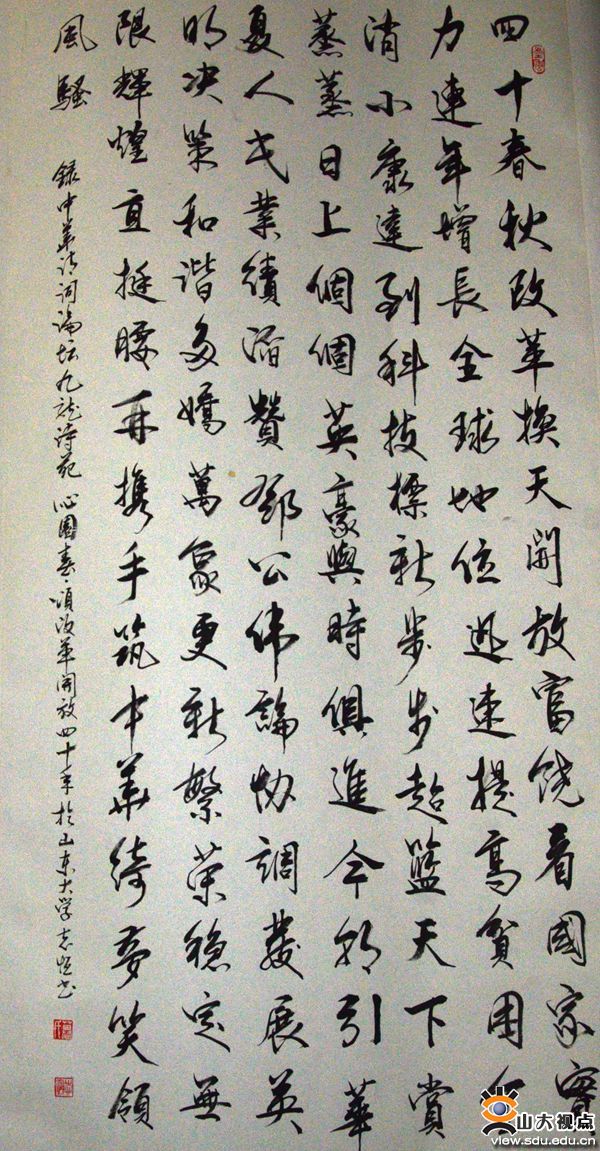 四十春秋改革換天開放富饶看國家實
力連年增長全球地位迅速提高貧困
消小康達到科技標新步步超籃天下賞
蒸蒸日上個個英豪與時俱進今朝引華
夏人民業績滔贊鄧公伟論協調發展英
明决策和谐多嬌萬象更新繁荣穩定無
限輝煌直挺腰再携手筑中華綺夢笑領
風騷
録中華诗词論坛九龙诗苑 沁園春·頌改革開放四十年於山东大学志恒书
山大视点
view.sdu.edu.cn